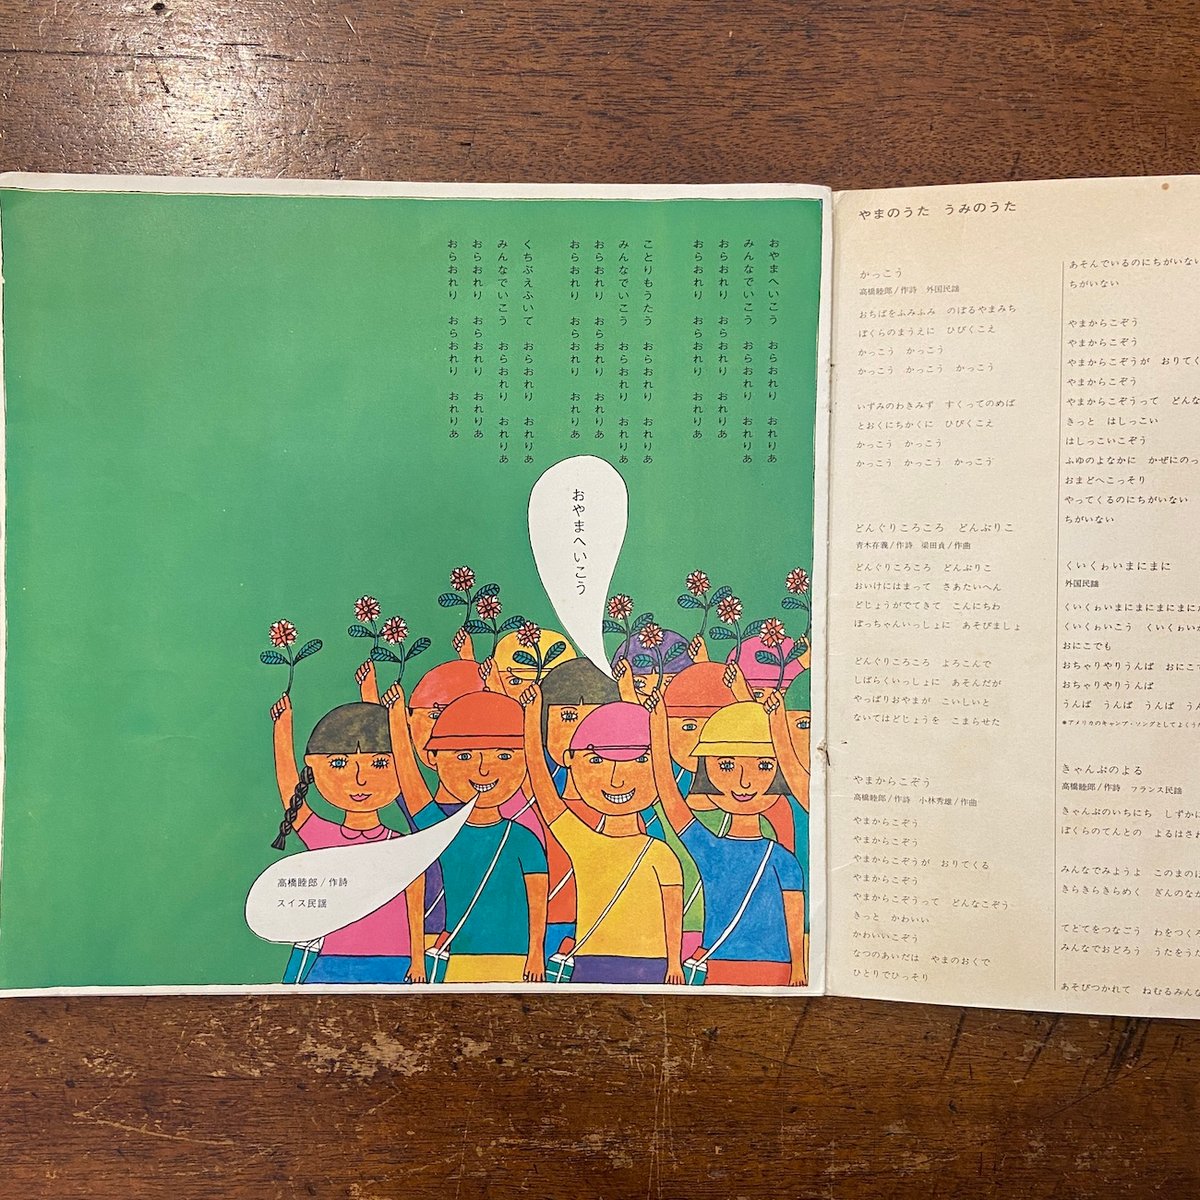 おやまへいこう　おらおれり　おれりあ
みんなでいこう　おらおれり　おれりあ
おらおれり　おらおれり　おれりあ
おらおれり　おらおれり　おれりあ
ことりもうたう　おらおれり　おれりあ
みんなでいこう　おらおれり　おれりあ
おらおれり　おらおれり　おれりあ
おらおれり　おらおれり　おれりあ
くちぶえふいて　おらおれり　おれりあ
みんなでいこう　おらおれり　おれりあ
おらおれり　おらおれり　おれりあ
おらおれり　おらおれり　おれりあ
おやまへいこう
高橋睦郎／作詩
スイス民謡
やまのうた　うみのうた
かっこう
高橋睦郎／作詩　外国民謡
おちばをふみふみ　のぼるやまみち
ぼくらのまうえに　ひびくこえ
かっこう　かっこう
かっこう　かっこう　かっこう
いずみのわきみず　すくってのめば
とおくにちかくに　ひびくこえ
かっこう　かっこう
かっこう　かっこう　かっこう
どんぐりころころ　どんぶりこ
青木存義／作詩　梁田貞／作曲
どんぐりころころ　どんぶりこ
おいけにはまって　さあたいへん
どじょうがでてきて　こんにちわ
ぼっちゃんいっしょに　あそびましょ
どんぐりころころ　よろこんで
しばらくいっしょに　あそんだが
やっぱりおやまが　こいしいと
ないてはどじょうを　こまらせた
やまからこぞう
高橋睦郎／作詩　小林秀雄／作曲
やまからこぞう
やまからこぞう
やまからこぞうが　おりてくる
やまからこぞう
やまからこぞうって　どんなこぞう
きっと　かわいい
かわいいこぞう
なつのあいだは　やまのおくで
ひとりでひっそり
あそんでいるのにちがいない
ちがいない
やまからこぞう
やまからこぞう
やまからこぞうが　おりてく
やまからこぞう
やまからこぞうって　どんな
きっと　はしっこい
はしっこいこぞう
ふゆのよなかに　かぜにのっ
おまどへこっそり
やってくるのにちがいない
ちがいない
くいくぃいまにまに
外国民謡
くいくぃいまにまにまにまに
くいくぃいこう　くいくぃいか
おにこでも
おちゃりやりうんば　おにこで
おちゃりやりうんば
うんば　うんば　うんば　うん
＊アメリカのキャンプ・ソングとしてよくう
きゃんぷのよる
高橋睦郎／作詩　フランス民謡
きゃんぷのいちにち　しずかに
ぼくらのてんとの　よるはさ
みんなでみようよ　このまの
きらきらきらめく　ぎんのなが
てとてをつなごう　わをつくろ
みんなでおどろう　うたをうた
あそびつかれて　ねむるみんな